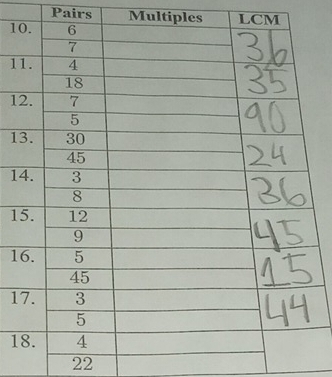 Pairs Multiples LCM
10. 6
7
36
11. 4
18
35
12. 7
5
90
13. 30
45
24
14. 3
8
36
15. 12
9
45
16. 5
45
15
17. 3
5
44
18. 4
22